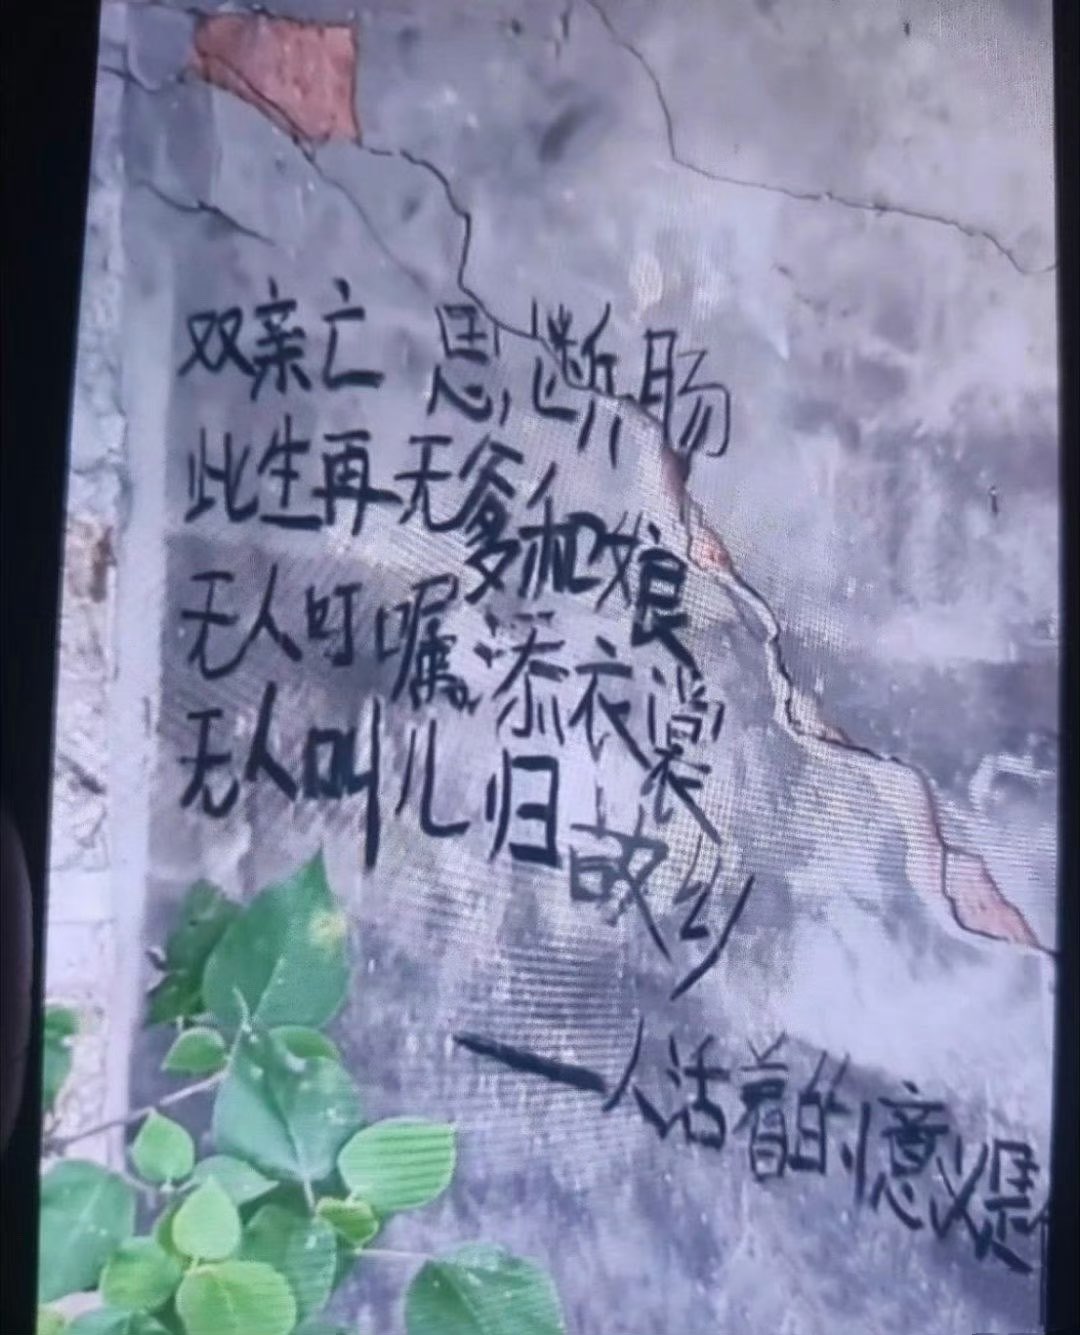 双亲亡 思断肠
此生再无爹和娘
无人叮嘱添衣裳
无人叫儿归故乡
一人活着的意义是